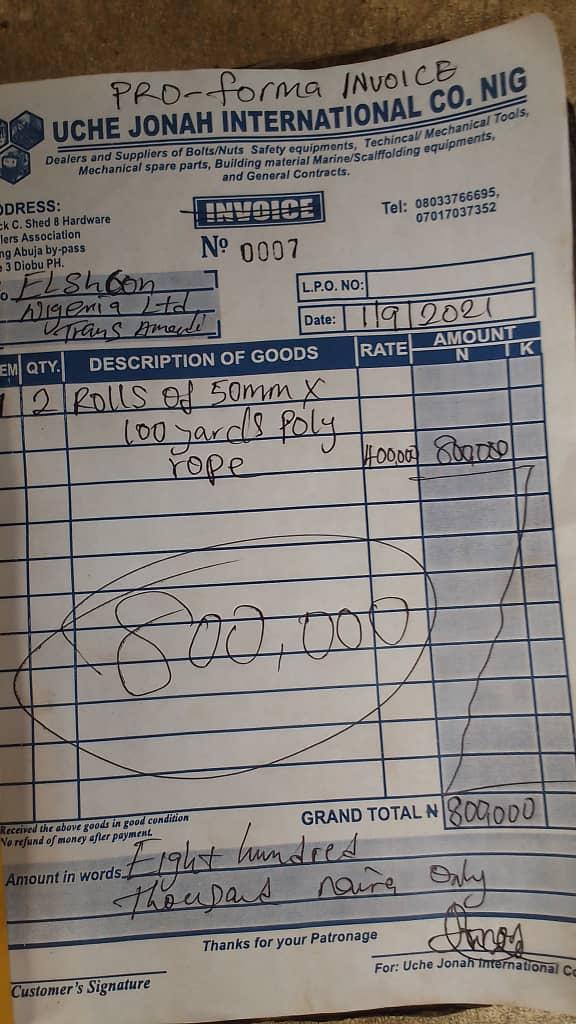 PRO-forma INVOICE
UCHE JONAH INTERNATIONAL CO. NIG
Dealers and Suppliers of Bolts/Nuts Safety equipments, Techincal/ Mechanical Tools,
Mechanical spare parts, Building material Marine/Scalffolding equipments,
and General Contracts.
DDRESS:
ck C. Shed 8 Hardware
lers Association
ng Abuja by-pass
3 Diobu PH.
INVOICE
Nº 0007
Tel: 08033766695,
07017037352
o
Nigeria Ltd
Trans Amadi
L.P.O. NO:
Date: 1/9/2021
EM QTY. DESCRIPTION OF GOODS RATE AMOUNT
N K
1 2 Rolls of 50mm X
100 yards Poly
rope 400,000 800,000
800,000
Received the above goods in good condition
No refund of money after payment.
GRAND TOTAL ₦ 800,000
Amount in words. Eight hundred
thousand naira Only
Thanks for your Patronage
For: Uche Jonah International Co
Customer's Signature